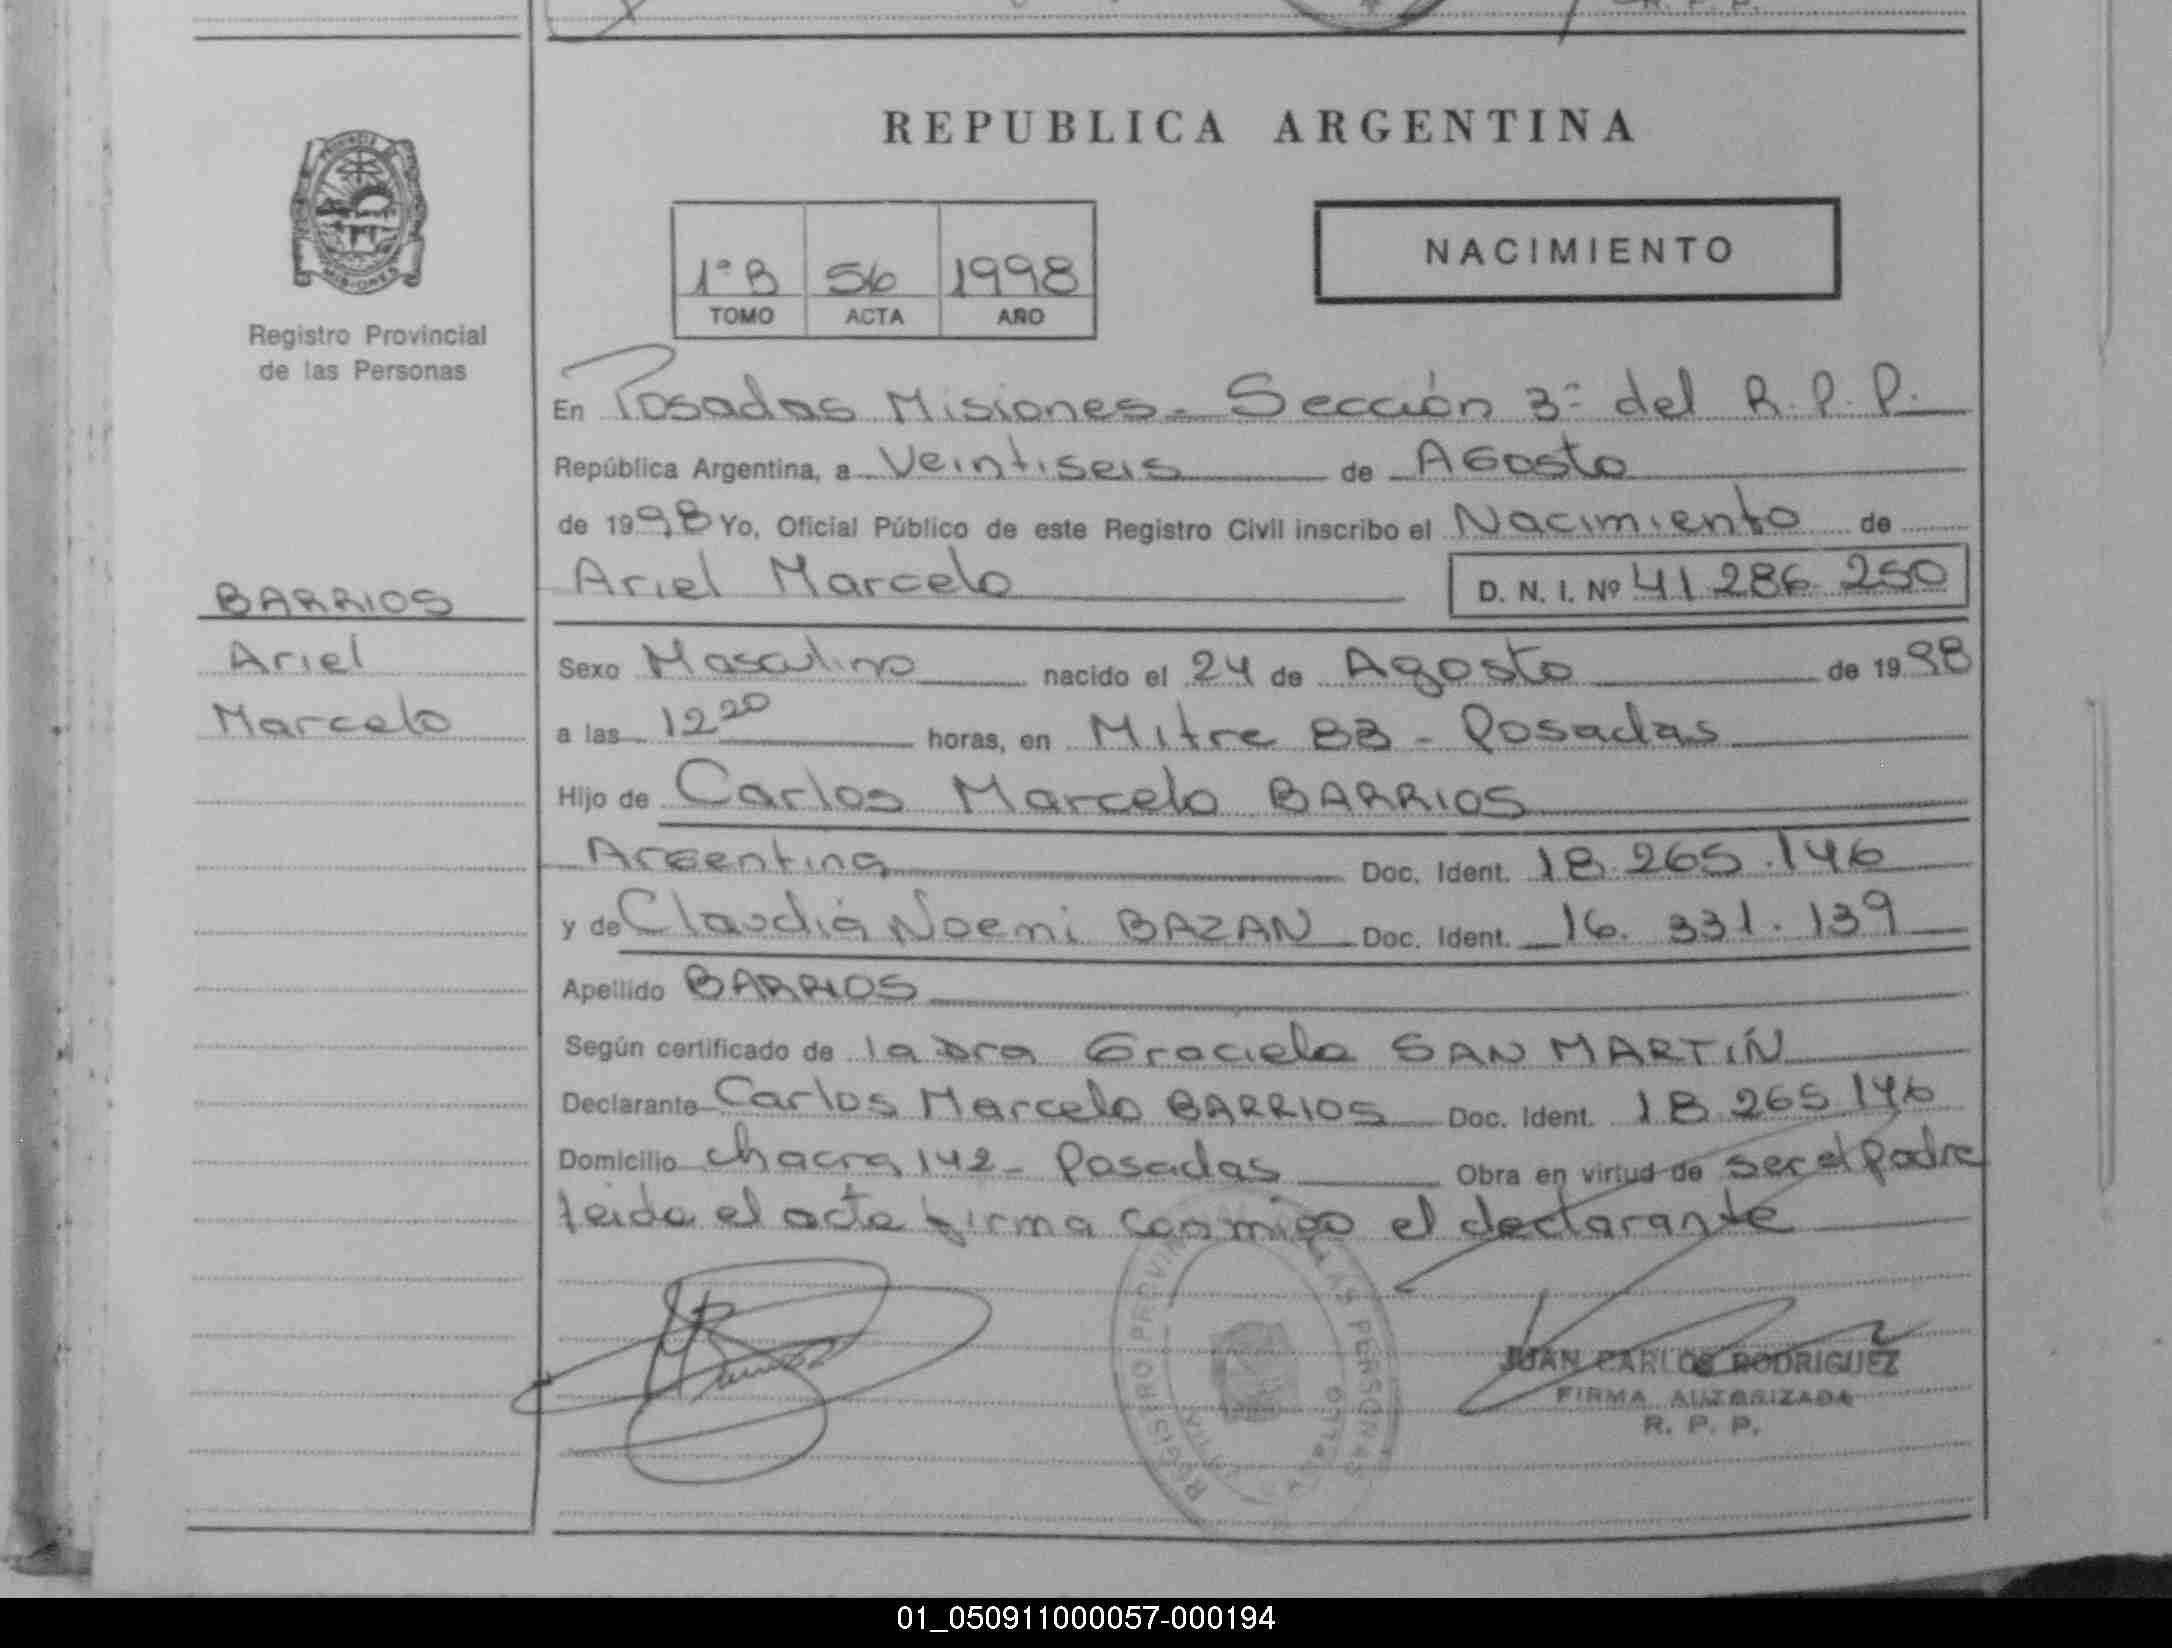 R. P. P.
REPUBLICA ARGENTINA
PROVINCIA DE
MISIONES
Registro Provincial
de las Personas
1º B 56 1998
TOMO ACTA AÑO
NACIMIENTO
En Posadas Misiones - Sección 3ª del R.P.P.
República Argentina, a Veintiseis de Agosto
de 1998 Yo, Oficial Público de este Registro Civil inscribo el Nacimiento de
Ariel Marcelo D. N. I. Nº 41 286 250
BARRIOS
Ariel
Marcelo
Sexo Masculino nacido el 24 de Agosto de 1998
a las 12 20 horas, en Mitre 83 - Posadas
Hijo de Carlos Marcelo BARRIOS
Argentina Doc. Ident. 18.265.146
y de Claudia Noemi BAZAN Doc. Ident. 16. 331. 139
Apellido BARRIOS
Según certificado de la Dra Graciela SAN MARTIN
Declarante Carlos Marcelo BARRIOS Doc. Ident. 18 265 146
Domicilio chacra 142 - Posadas Obra en virtud de ser el padre
leida el acta firma conmigo el declarante
REGISTRO PROVINCIAL DE LAS PERSONAS
JUAN CARLOS RODRIGUEZ
FIRMA AUTORIZADA
R. P. P.
01_050911000057-000194